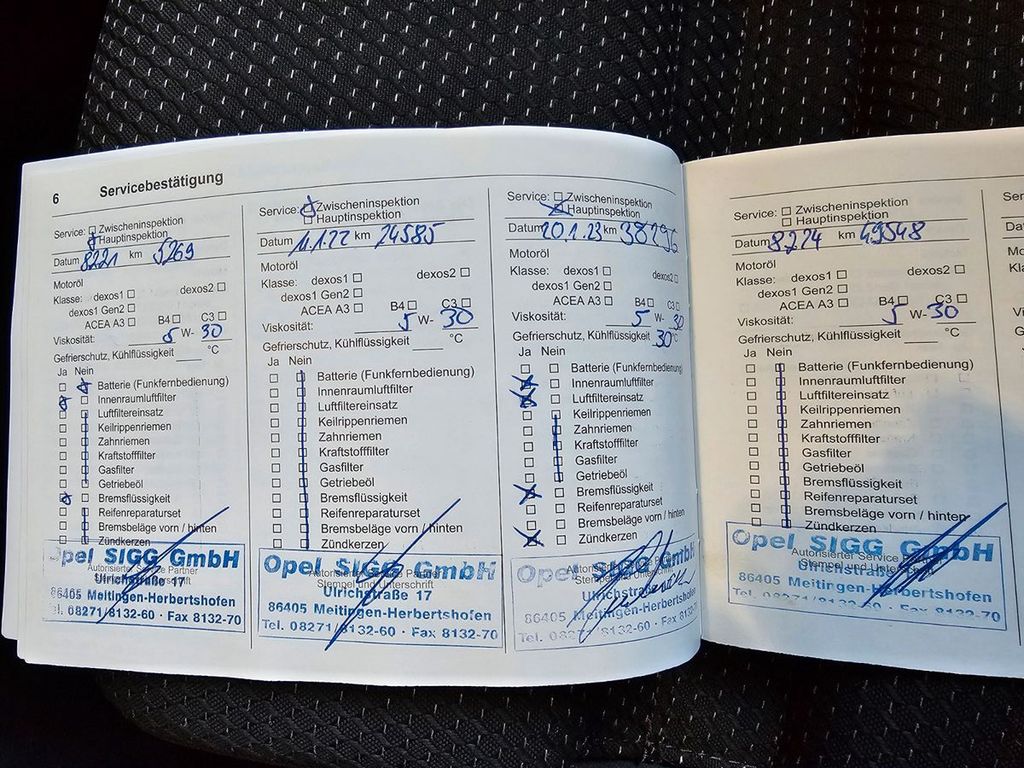 6 Servicebestätigung
Service: Zwischeninspektion
Hauptinspektion
Datum 8221 km 5269
Motoröl
Klasse: dexos1 dexos2
dexos1 Gen2
ACEA A3 B4 C3
Viskosität: 5 W- 30
Gefrierschutz, Kühlflüssigkeit °C
Ja Nein
Batterie (Funkfernbedienung)
Innenraumluftfilter
Luftfiltereinsatz
Keilrippenriemen
Zahnriemen
Kraftstofffilter
Gasfilter
Getriebeöl
Bremsflüssigkeit
Reifenreparaturset
Bremsbeläge vorn / hinten
Zündkerzen
Opel SIGG GmbH
Autorisierter Service Partner
Ulrichstraße 17
86405 Meitingen-Herbertshofen
Tel. 08271/8132-60 · Fax 8132-70
Service: Zwischeninspektion
Hauptinspektion
Datum 11.1.22 km 24585
Motoröl
Klasse: dexos1 dexos2
dexos1 Gen2
ACEA A3 B4 C3
Viskosität: 5 W- 30
Gefrierschutz, Kühlflüssigkeit °C
Ja Nein
Batterie (Funkfernbedienung)
Innenraumluftfilter
Luftfiltereinsatz
Keilrippenriemen
Zahnriemen
Kraftstofffilter
Gasfilter
Getriebeöl
Bremsflüssigkeit
Reifenreparaturset
Bremsbeläge vorn / hinten
Zündkerzen
Opel SIGG GmbH
Stempel und Unterschrift
Ulrichstraße 17
86405 Meitingen-Herbertshofen
Tel. 08271/8132-60 · Fax 8132-70
Service: Zwischeninspektion
Hauptinspektion
Datum 20.1.23 km 38296
Motoröl
Klasse: dexos1 dexos2
dexos1 Gen2
ACEA A3 B4 C3
Viskosität: 5 W- 30
Gefrierschutz, Kühlflüssigkeit 30°C
Ja Nein
Batterie (Funkfernbedienung)
Innenraumluftfilter
Luftfiltereinsatz
Keilrippenriemen
Zahnriemen
Kraftstofffilter
Gasfilter
Getriebeöl
Bremsflüssigkeit
Reifenreparaturset
Bremsbeläge vorn / hinten
Zündkerzen
Opel GmbH
86405 Meitingen-Herbertshofen
Tel. 08271/8132-60 · Fax 8132-70
Service: Zwischeninspektion
Hauptinspektion
Datum 8224 km 49548
Motoröl
Klasse: dexos1 dexos2
dexos1 Gen2
ACEA A3 B4 C3
Viskosität: 5 W- 30
Gefrierschutz, Kühlflüssigkeit °C
Ja Nein
Batterie (Funkfernbedienung)
Innenraumluftfilter
Luftfiltereinsatz
Keilrippenriemen
Zahnriemen
Kraftstofffilter
Gasfilter
Getriebeöl
Bremsflüssigkeit
Reifenreparaturset
Bremsbeläge vorn / hinten
Zündkerzen
Opel SIGG GmbH
Autorisierter Service
Stempel und
86405 Meitingen-Herbertshofen
Tel. 08271/8132-60 · Fax 8132-70